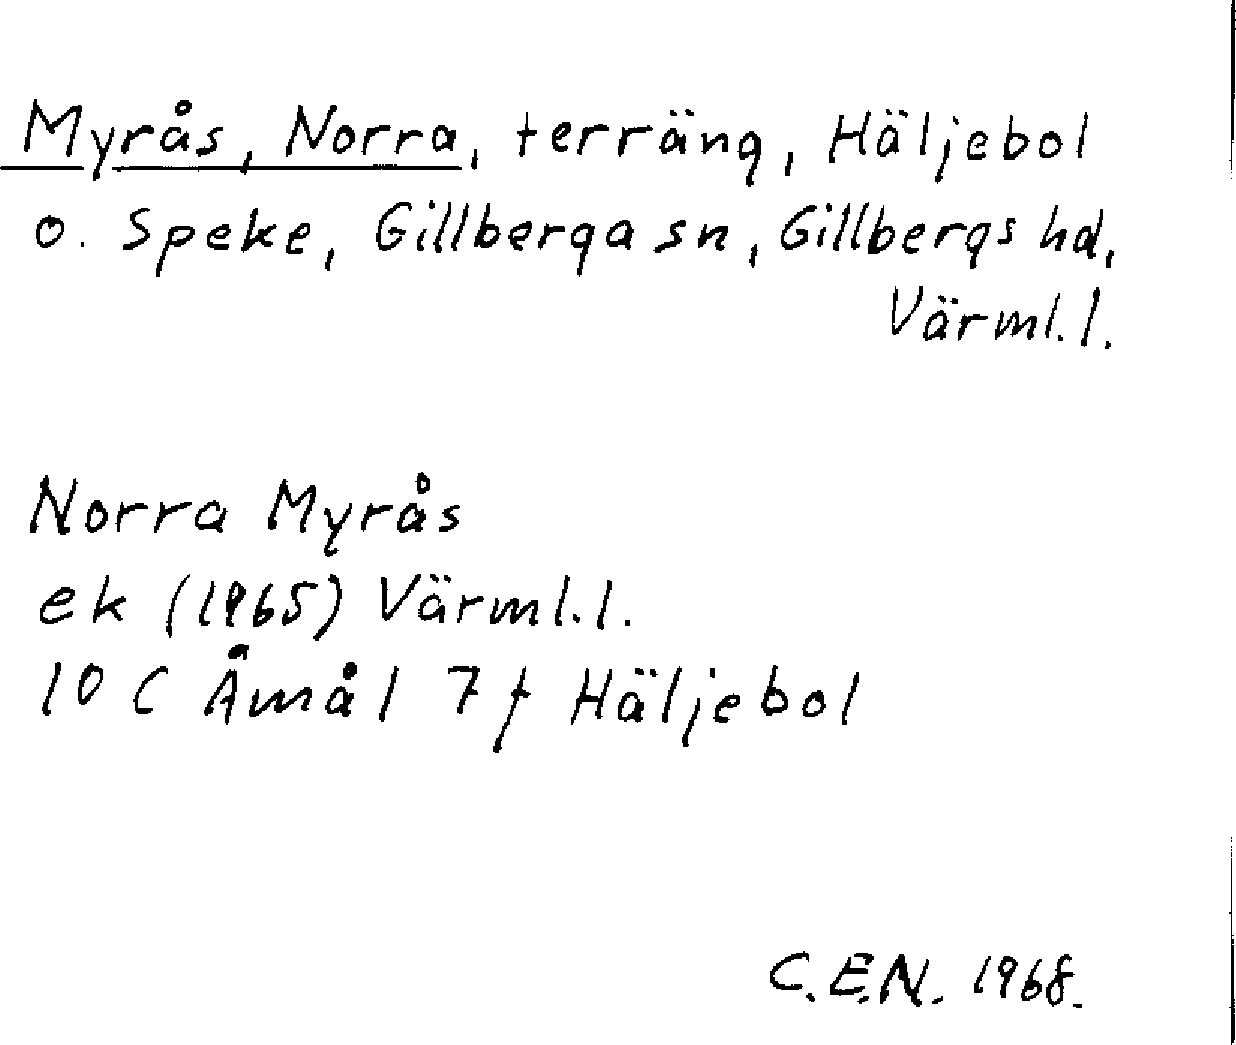 Myrås, Norra, terräng, Häljebol
o. Speke, Gillberga sn, Gillbergs hd,
Värml.l.
Norra Myrås
ek (1965) Värml.l.
10 C Åmål 7 f Häljebol
C.E.N. 1968.